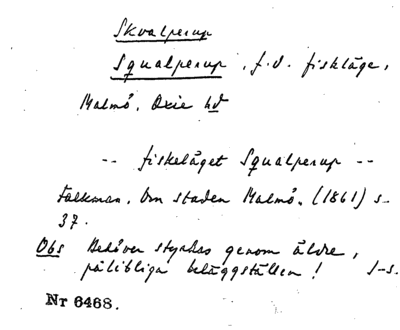 Skvalperup
Squalperup, f.d. fiskläge,
Malmö, Oxie hd
-- fiskeläget Squalperup --
Falkman, Om staden Malmö. (1861) s.
37.
Obs Behöver styrkas genom äldre,
pålitliga beläggställen! J-s.
Nr 6468.